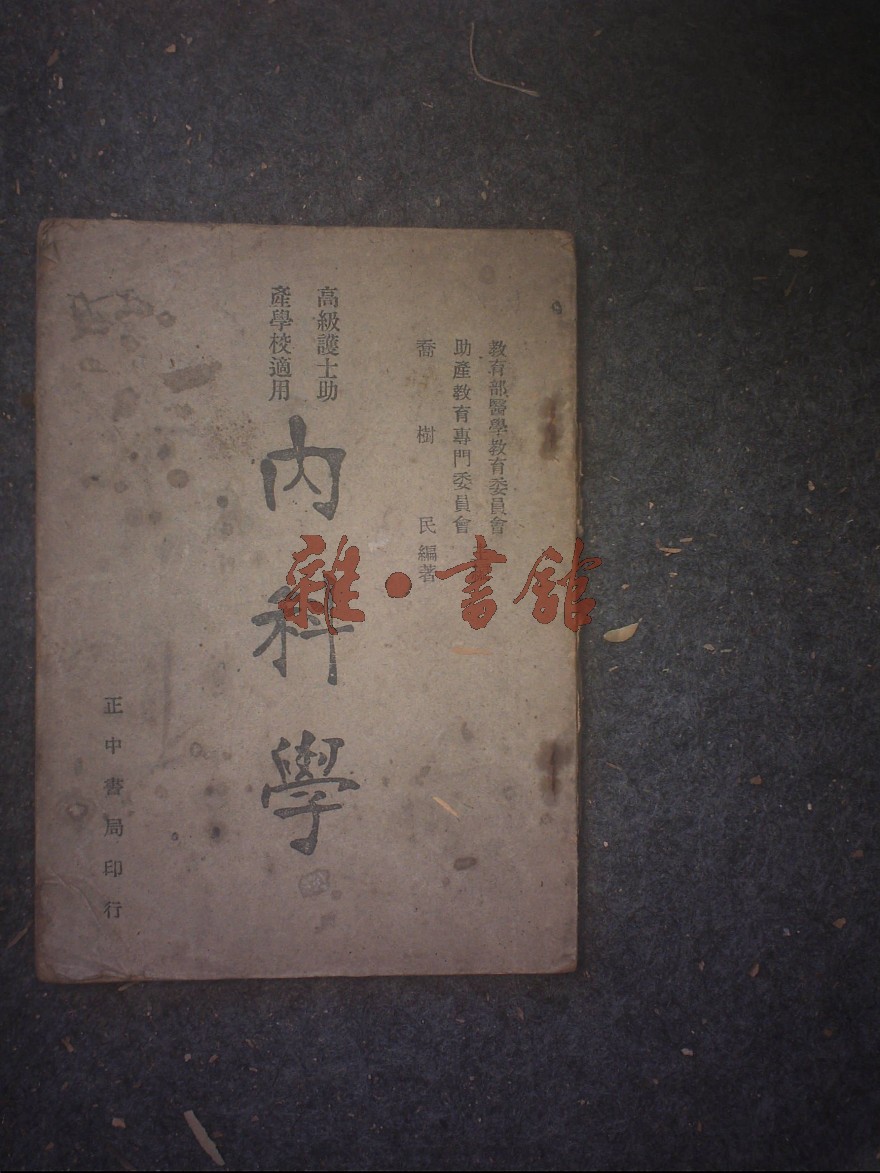 教育部醫學教育委員會
助產教育專門委員會
喬樹民編著
高級護士助
產學校適用
內科學
正中書局印行
雜·書館